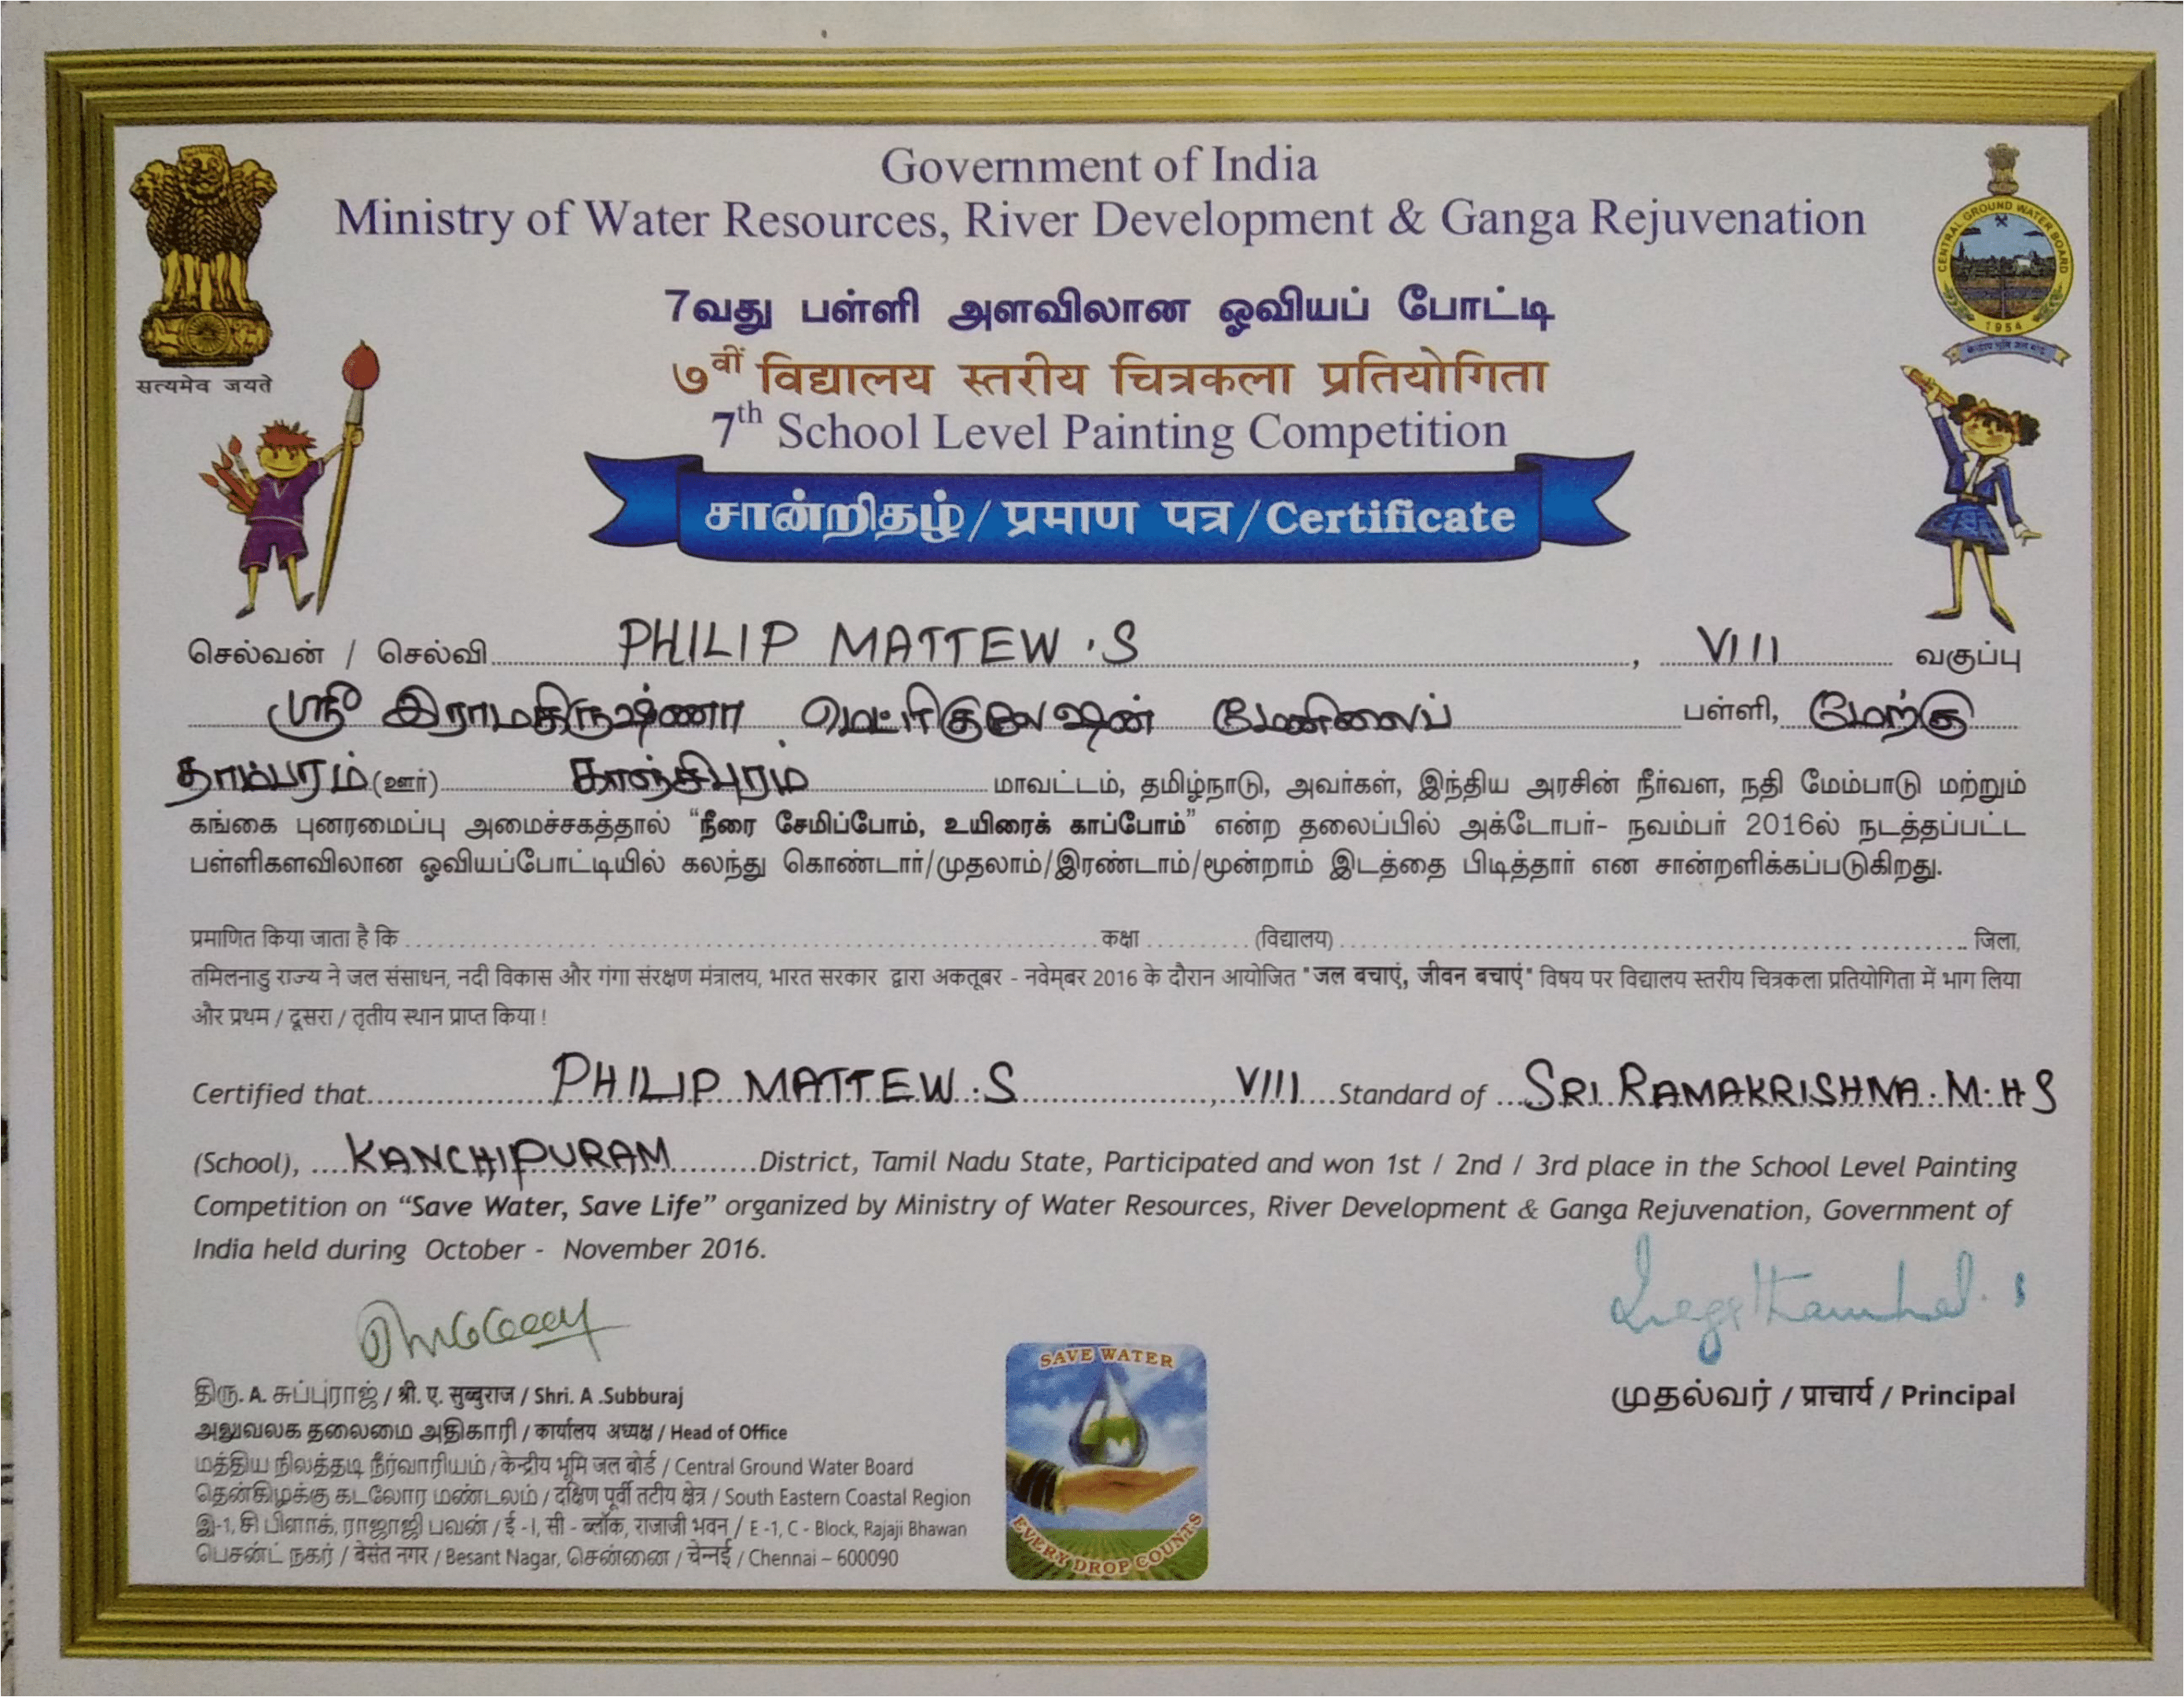 Government of India
Ministry of Water Resources, River Development & Ganga Rejuvenation
सत्यमेव जयते
CENTRAL GROUND WATER BOARD
1954
7வது பள்ளி அளவிலான ஓவியப் போட்டி
७वीं विद्यालय स्तरीय चित्रकला प्रतियोगिता
7th School Level Painting Competition
சான்றிதழ் / प्रमाण पत्र / Certificate
செல்வன் / செல்வி PHILIP MATTEW .S , VIII வகுப்பு
ஸ்ரீ இராமகிருஷ்ணா மெட்ரிகுலேஷன் மேனிலைப் பள்ளி, மேற்கு
தாம்பரம் (ஊர்) காஞ்சிபுரம் மாவட்டம், தமிழ்நாடு, அவர்கள், இந்திய அரசின் நீர்வள, நதி மேம்பாடு மற்றும்
கங்கை புனரமைப்பு அமைச்சகத்தால் “நீரை சேமிப்போம், உயிரைக் காப்போம்” என்ற தலைப்பில் அக்டோபர்- நவம்பர் 2016ல் நடத்தப்பட்ட
பள்ளிகளவிலான ஓவியப்போட்டியில் கலந்து கொண்டார்/முதலாம்/இரண்டாம்/மூன்றாம் இடத்தை பிடித்தார் என சான்றளிக்கப்படுகிறது.
प्रमाणित किया जाता है कि ........ कक्षा .......... (विद्यालय) ........ जिला,
तमिलनाडु राज्य ने जल संसाधन, नदी विकास और गंगा संरक्षण मंत्रालय, भारत सरकार द्वारा अकतूबर - नवेम्बर 2016 के दौरान आयोजित "जल बचाएं, जीवन बचाएं" विषय पर विद्यालय स्तरीय चित्रकला प्रतियोगिता में भाग लिया
और प्रथम / दूसरा / तृतीय स्थान प्राप्त किया !
Certified that PHILIP MATTEW .S , VIII Standard of SRI RAMAKRISHNA. M. H S
(School), KANCHIPURAM District, Tamil Nadu State, Participated and won 1st / 2nd / 3rd place in the School Level Painting
Competition on “Save Water, Save Life” organized by Ministry of Water Resources, River Development & Ganga Rejuvenation, Government of
India held during October - November 2016.
திரு. A. சுப்புராஜ் / श्री. ए. सुब्बुराज / Shri. A .Subburaj
அலுவலக தலைமை அதிகாரி / कार्यालय अध्यक्ष / Head of Office
மத்திய நிலத்தடி நீர்வாரியம் / केन्द्रीय भूमि जल बोर्ड / Central Ground Water Board
தென்கிழக்கு கடலோர மண்டலம் / दक्षिण पूर्वी तटीय क्षेत्र / South Eastern Coastal Region
இ-1, சி பிளாக், ராஜாஜி பவன் / ई -I, सी - ब्लॉक, राजाजी भवन / E -1, C - Block, Rajaji Bhawan
பெசன்ட் நகர் / बेसंत नगर / Besant Nagar, சென்னை / चेन्नई / Chennai – 600090
SAVE WATER
EVERY DROP COUNTS
முதல்வர் / प्राचार्य / Principal